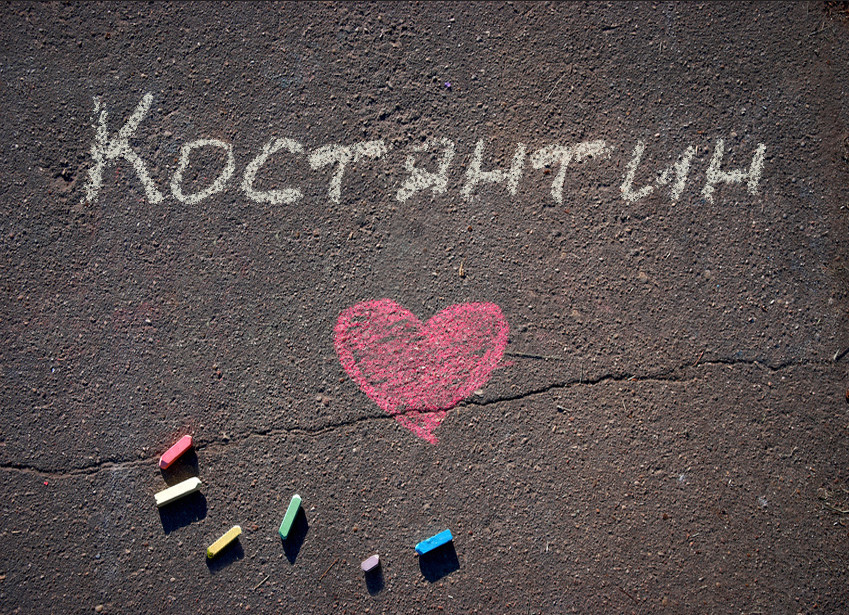 Костянтин